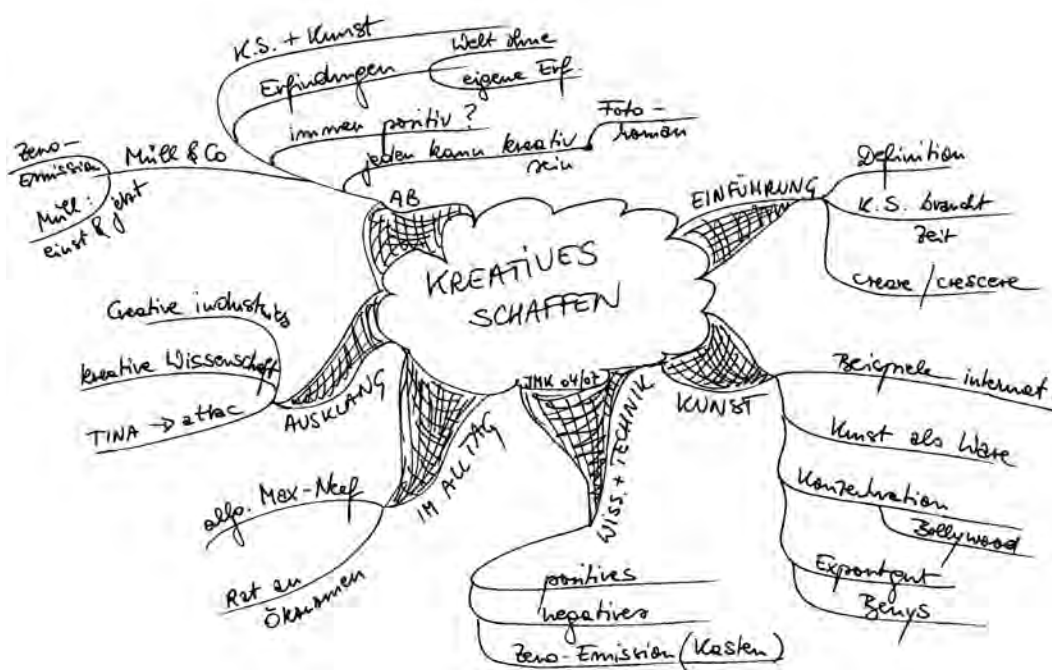 KREATIVES
SCHAFFEN
JMK 04/07
EINFÜHRUNG
Definition
K.S. braucht
Zeit
creare / crescere
KUNST
Beispiele internat.
Kunst als Ware
Konzentration
Bollywood
Exportgut
Beuys
WISS. + TECHNIK
positives
negatives
Zero-Emission (Kasten)
IM ALLTAG
allg. Max-Neef
Rat an
Ökonomen
AUSKLANG
Creative industries
kreative Wissenschaft
TINA → attac
AB
Müll & Co
Zero-
Emission
Müll:
einst & jetzt
K.S. + Kunst
Erfindungen
Welt ohne
eigene Erf.
immer positiv?
jeder kann kreativ
sein
Foto-
roman